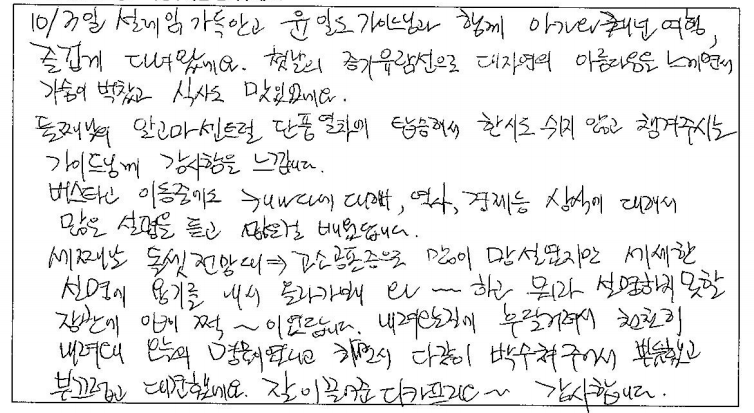 10/3일 설레임 가득안고 윤일도 가이드님과 함께 아가와 캐년 여행,
즐겁게 다녀왔네요. 첫날의 증기유람선으로 대자연의 아름다움을 느끼면서
가슴이 벅찼고 식사도 맛있었네요.
둘째날의 알고마센트럴 단풍열차에 탑승해서 한시도 쉬지 않고 챙겨주시는
가이드님께 감사함을 느낍니다.
버스타고 이동중에도 캐나다에 대해, 역사, 경제등 상식에 대해서
많은 설명을 듣고 많은걸 배웠습니다.
세째날 돌셋전망대⇒ 고소공포증으로 많이 망설였지만 세세한
설명에 용기를 내서 올라가보니 와 ~~ 하고 뭐라 설명하지 못할
장관에 입이 쩍 ~ 이었답니다. 내려오는길에 후들거려서 천천히
내려오니 오늘의 명물이었다고 하면서 다같이 박수쳐주어서 뿌듯했고
부끄럽고 대견했네요. 잘 이끌어준 디카프리오~ 감사합니다.